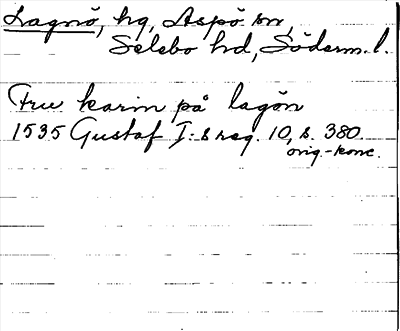 Lagnö, hg, Aspö sn
Selebo hd, Söderm. l.
Fru karin på lagön
1535 Gustaf I:s reg. 10, s. 380.
orig.-konc.